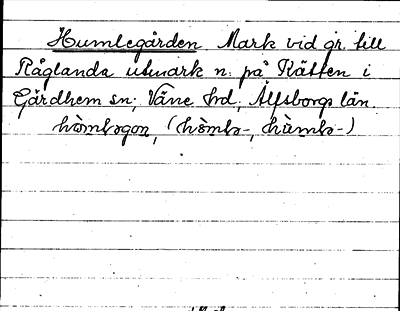 Humlegården Mark vid gr. till
Råglanda utmark n. på Kätten i
Gärdhem sn; Väne hd, Älfsborgs län.
hòmləgoɳ, (hòmlə-, hùmlə-)